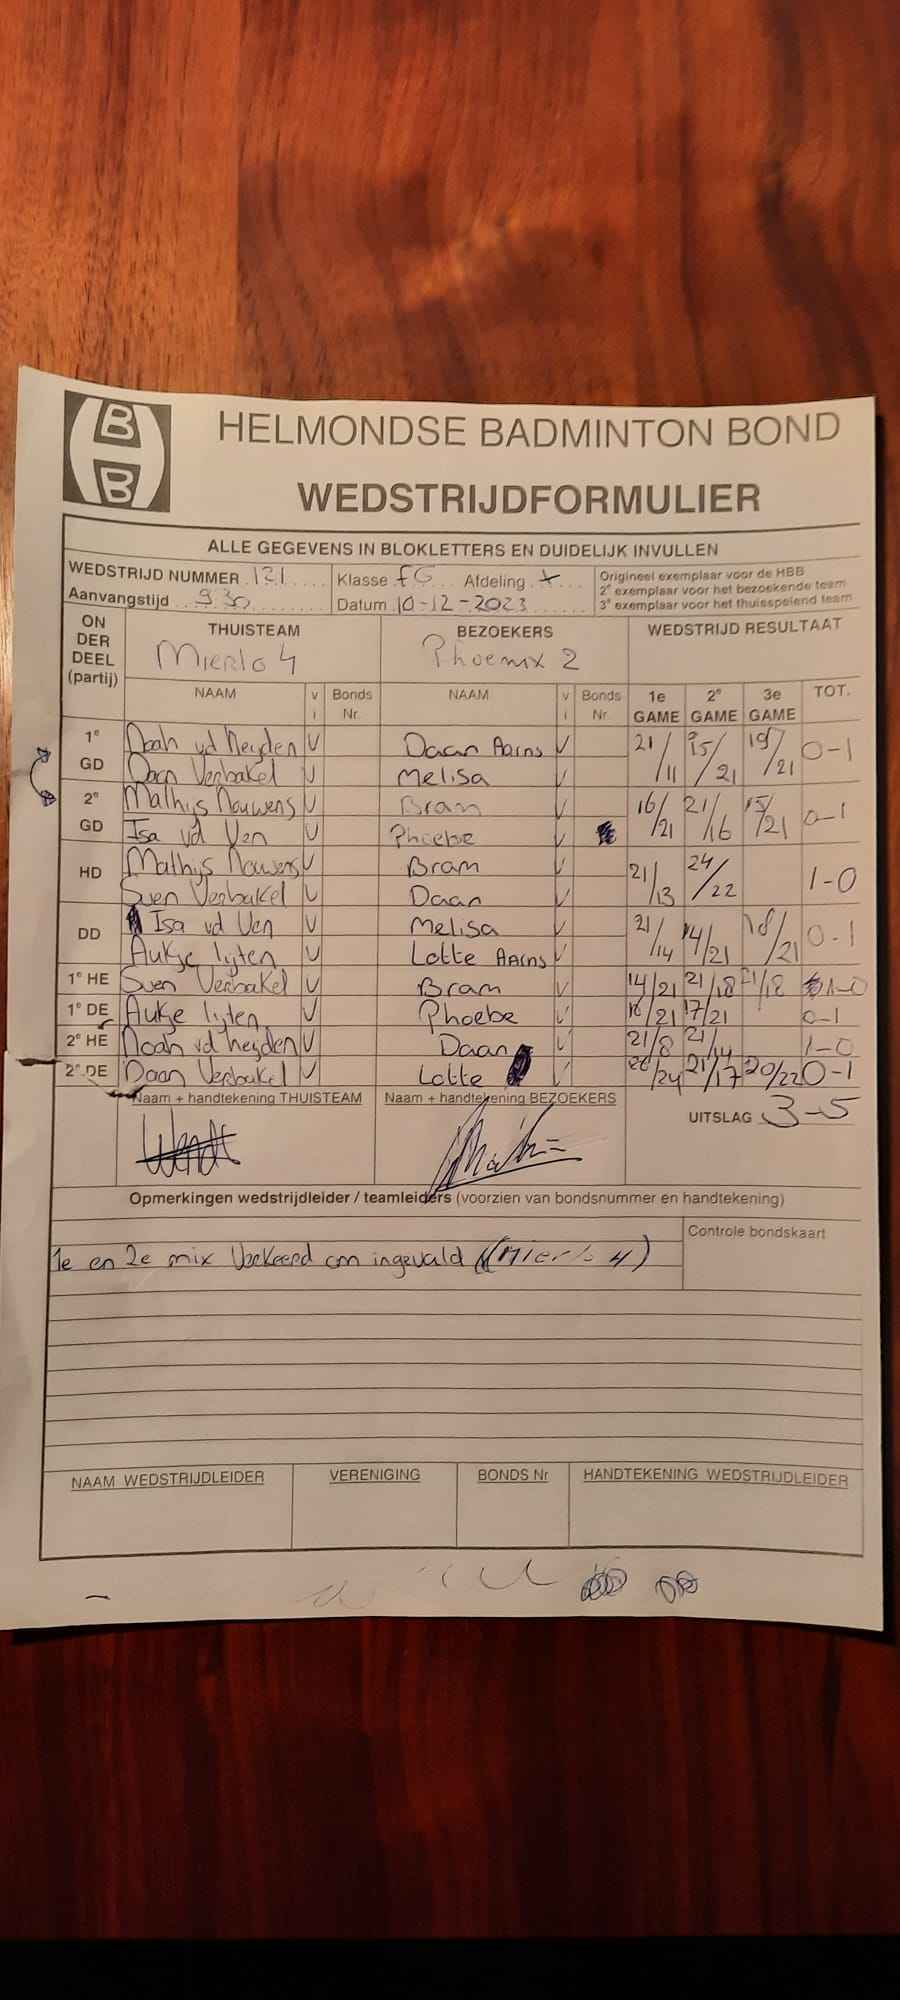 B
B
HELMONDSE BADMINTON BOND
WEDSTRIJDFORMULIER
ALLE GEGEVENS IN BLOKLETTERS EN DUIDELIJK INVULLEN
WEDSTRIJD NUMMER 121 Klasse FG Afdeling Origineel exemplaar voor de HBB
2e exemplaar voor het bezoekende team
Aanvangstijd 9.30 Datum 10-12-2023 3e exemplaar voor het thuisspelend team
ON DER DEEL (partij) THUISTEAM BEZOEKERS WEDSTRIJD RESULTAAT
Mierlo 4 Phoenix 2
NAAM v i Bonds Nr. NAAM v i Bonds Nr. 1e GAME 2e GAME 3e GAME TOT.
1e GD Noah vd heyden V Daan Aarns V 21/11 15/21 19/21 0-1
Daan Verbakel V Melisa V
2e GD Mathys Nouwens V Bram V 16/21 21/16 15/21 0-1
Isa vd Ven V Phoebe V
HD Mathys Nouwens V Bram V 21/13 24/22 1-0
Sven Verbakel V Daan V
DD Isa vd Ven V Melisa V 21/14 14/21 18/21 0-1
Aukje lijten V Lotte Aarns V
1e HE Sven Verbakel V Bram V 14/21 21/18 21/18 1-0
1e DE Aukje lijten V Phoebe V 18/21 17/21 0-1
2e HE Noah vd heyden V Daan V 21/8 21/14 1-0
2e DE Daan Verbakel V Lotte V /24 21/17 20/22 0-1
Naam + handtekening THUISTEAM Naam + handtekening BEZOEKERS UITSLAG 3-5
Opmerkingen wedstrijdleider / teamleiders (voorzien van bondsnummer en handtekening)
Controle bondskaart
1e en 2e mix Verkeerd om ingevald (Mierlo 4)
NAAM WEDSTRIJDLEIDER VERENIGING BONDS Nr HANDTEKENING WEDSTRIJDLEIDER